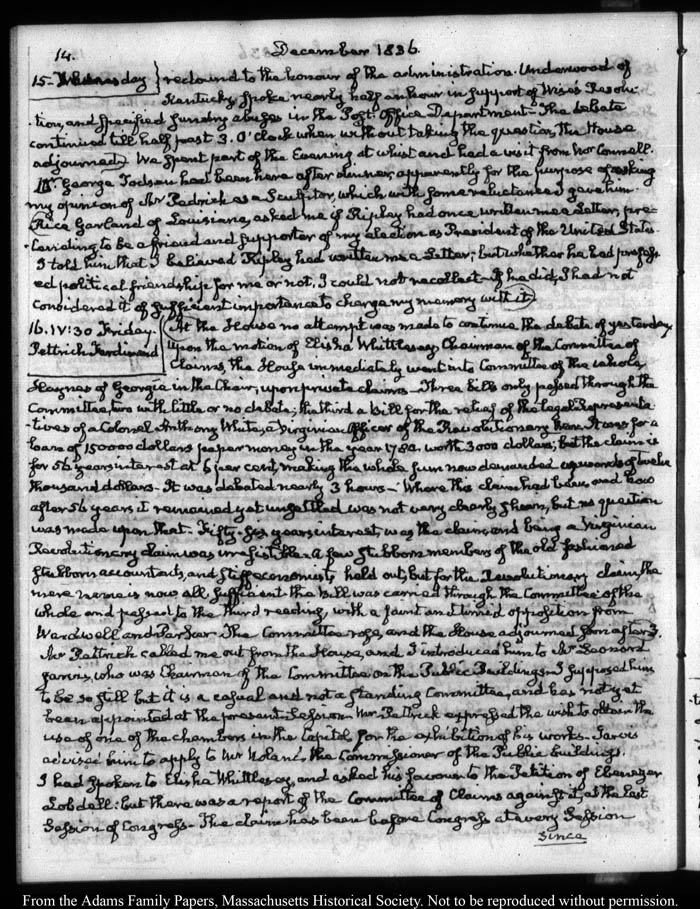 14.
December 1836.
15- Wednesday } redound to the honour of the administration. Underwood of
Kentucky, spoke nearly half an hour in support of Wise's Resolu-
-tion, and specified sundry abuses in the Post-Office Department- The debate
continued till half past 3. O'Clock when without taking the question, the House
adjourned. We spent part of the Evening at whist and had a visit from Mr Connell.
Dr George Todsen had been here after dinner, apparently for the purpose of asking
my opinion of Mr Pedrick as a Sculptor, which with some reluctance I gave him.
Rice Garland of Louisiana, asked me if Ripley had once written me a Letter, pre-
-tending to be a friend and supporter of my election as President of the United States.
I told him that I believed Ripley had written me a Letter; but whether he had profess-
ed political friendship for me or not, I could not recollect- If he did, I had not
considered it of sufficient importance to charge my memory with it.
16. IV:30 Friday.
Pettrich Ferdinand
At the House no attempt was made to continue the debate of yesterday
Upon the motion of Elisha Whittlesey, Chairman of the Committee of
Claims, the House immediately went into Committee of the whole,
Haynes of Georgia in the Chair, upon private claims- Three bills only passed through the
Committee, two with little or no debate; the third a bill for the relief of the legal Representa-
-tives of a Colonel Anthony White, a Virginian Officer of the Revolutionary War. It was for a
loan of 150000 dollars paper money in the year 1780. worth 3000 dollars; but the claim is
for 56 years interest at 6 per cent, making the whole sum now demanded upwards of twelve
thousand dollars- It was debated nearly 3 hours- Where this claim had been, and how
after 56 years it remained yet unsettled was not very clearly shewn, but no question
was made upon that- Fifty-six years interest, was the claim, and being a Virginian
Revolutionary claim was irresistible. A few stubborn members of the old fashioned
stubborn accountants, and stiff economists, held out, but for the Revolutionary claim, the
mere name is now all sufficient the Bill was carried through the Committee of the
whole and passed to the third reading, with a faint and timid opposition from
Wardwell and Parker. The Committee rose, and the House adjourned soon after 3.
Mr Pettrick called me out from the House, and I introduced him to Mr Leonard
Jarvis, who was Chairman of the Committee on the Public Buildings- I supposed him
to be so still but it is a casual and not a standing Committee, and has not yet
been appointed at the present Session- Mr Pettrick expressed the wish to obtain the
use of one of the chambers in the Capitol for the exhibition of his works. Jarvis
advised him to apply to Mr Noland, the Commissioner of the Public buildings.
I had spoken to Elisha Whittlesey, and asked his favour to the Petition of Ebenezer
Lobdell: but there was a report of the Committee of Claims against it, at the last
Session of Congress- The claim has been before Congress at every Session
since
From the Adams Family Papers, Massachusetts Historical Society. Not to be reproduced without permission.